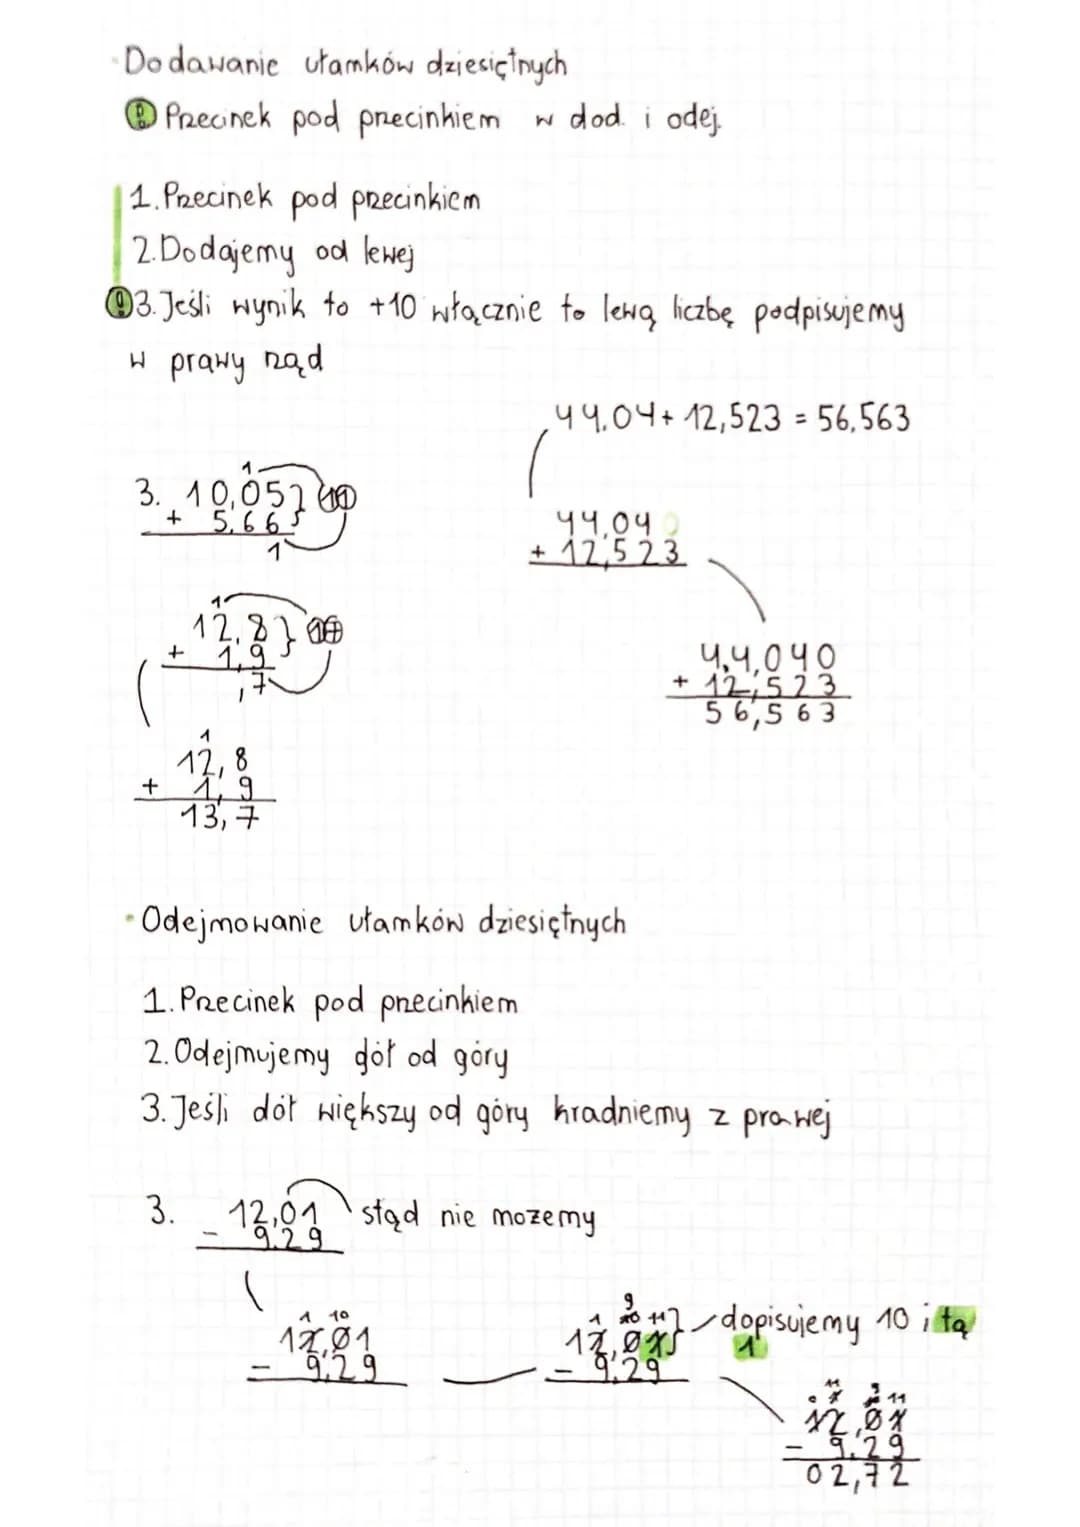 Dodawanie ułamków dziesiętnych
! Przecinek pod przecinkiem w dod. i odej.
1. Przecinek pod przecinkiem
2. Dodajemy od lewej
! 3. Jeśli wynik to +10 włącznie to lewą liczbę podpisujemy
w prawy rząd
44,04 + 12,523 = 56,563
1
3. 10,05 } 11
+ 5,66
1
44,040
+ 12,523
1
12,8 } 17
+ 1,9
,7
44,040
+ 12,523
56,563
1
12,8
+ 1,9
13,7
• Odejmowanie ułamków dziesiętnych
1. Przecinek pod przecinkiem
2. Odejmujemy dół od góry
3. Jeśli dół większy od góry kradniemy z prawej
3. 12,01 stąd nie możemy
- 9,29
1 10
12,01
- 9,29
9
1 10 11
12,01 } dopisujemy 10 i tą
- 9,29 1
11 9
0 1 10 11
12,01
- 9,29
02,72